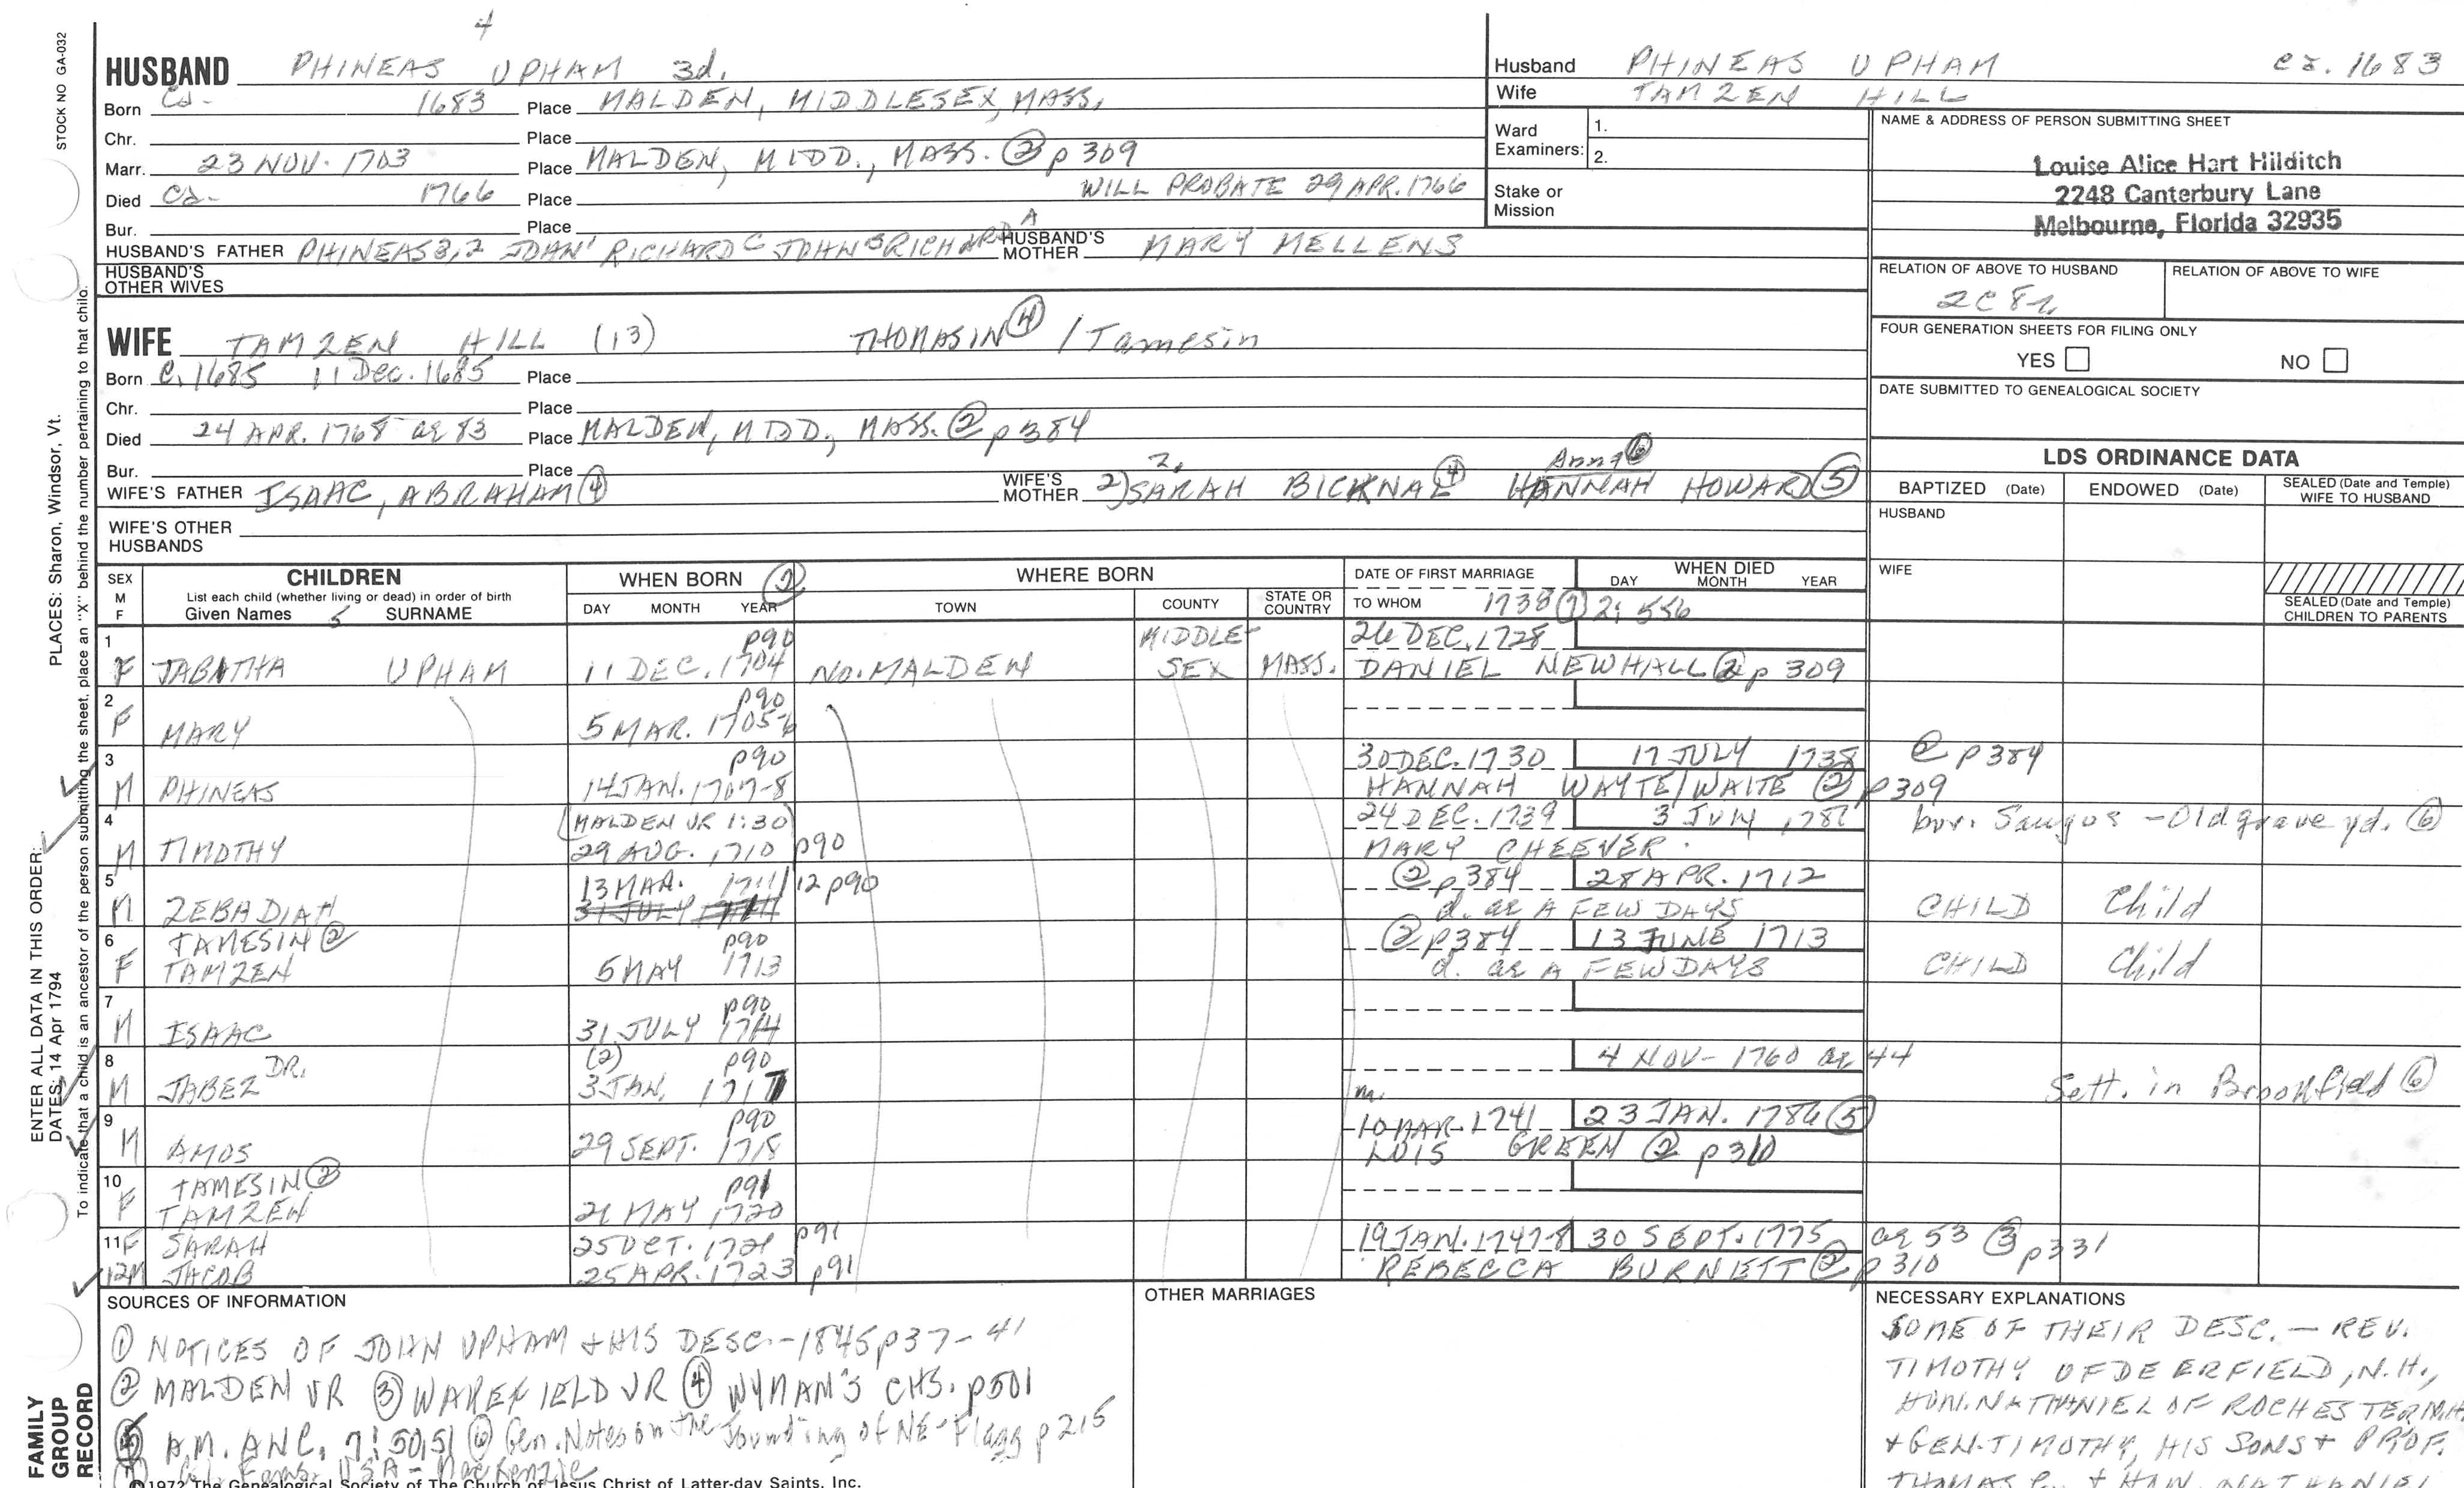 4
HUSBAND PHINEAS UPHAM 3d.
Born Ca- 1683 Place MALDEN, MIDDLESEX, MASS.
Chr. Place
Marr. 23 NOV. 1703 Place MALDEN, MIDD., MASS. ② p 309
Died Ca- 1766 Place WILL PROBATE 29 APR. 1766
Bur. Place
HUSBAND'S FATHER PHINEAS 3,2 JOHN 1 RICHARD C JOHN B RICHARD A HUSBAND'S MOTHER MARY MELLENS
HUSBAND'S OTHER WIVES
WIFE TAMZEN HILL (13) THOMASIN ④ / Tamesin
Born C. 1685 11 Dec. 1685 Place
Chr. Place
Died 24 APR. 1768 ae 83 Place MALDEN, MIDD., MASS. ② p 384
Bur. Place
WIFE'S FATHER ISAAC, ABRAHAM ④ WIFE'S MOTHER 2) SARAH BICKNAL ④ HANNAH HOWARD ⑤
2. Anna ⑥
WIFE'S OTHER HUSBANDS
Husband PHINEAS UPHAM ca. 1683
Wife TAMZEN HILL
Ward Examiners: 1.
2.
Stake or Mission
NAME & ADDRESS OF PERSON SUBMITTING SHEET
Louise Alice Hart Hilditch
2248 Canterbury Lane
Melbourne, Florida 32935
RELATION OF ABOVE TO HUSBAND RELATION OF ABOVE TO WIFE
2C 8r
FOUR GENERATION SHEETS FOR FILING ONLY
YES NO
DATE SUBMITTED TO GENEALOGICAL SOCIETY
LDS ORDINANCE DATA
BAPTIZED (Date) ENDOWED (Date) SEALED (Date and Temple) WIFE TO HUSBAND
HUSBAND
WIFE
SEALED (Date and Temple) CHILDREN TO PARENTS
SEX M F CHILDREN WHEN BORN ② WHERE BORN DATE OF FIRST MARRIAGE WHEN DIED
List each child (whether living or dead) in order of birth
Given Names 5 SURNAME DAY MONTH YEAR TOWN COUNTY STATE OR COUNTRY TO WHOM DAY MONTH YEAR
1738 ⑦ 2: 556
1 p90 MIDDLE- 26 DEC. 1728
F TABATHA UPHAM 11 DEC. 1704 NO. MALDEN SEX MASS. DANIEL NEWHALL ② p 309
2 p90
F MARY 5 MAR. 1705-6
3 p90 30 DEC. 1730 17 JULY 1738 ② p 384
M PHINEAS 14 JAN. 1707-8 HANNAH WAYTE/WAITE ② p309
4 MALDEN VR 1:30 24 DEC. 1739 3 JULY 1781 bur. Saugus - Old grave yd. ⑥
M TIMOTHY 29 AUG. 1710 p90 MARY CHEEVER
5 13 MAR. 1711/12 p90 ② p384 28 APR. 1712
M ZEBADIAH 31 JULY 1714 d. ae A FEW DAYS CHILD Child
6 TAMESIN ② p90 ② p384 13 JUNE 1713
F TAMZEN 5 MAY 1713 d. ae A FEW DAYS CHILD Child
7 p90
M ISAAC 31 JULY 1714
8 DR. (2) p90 4 NOV- 1760 ae 44
M JABEZ 3 JAN. 1717 Sett. in Brookfield ⑥
9 p90 m. 10 MAR. 1741 23 JAN. 1786 ⑤
M AMOS 29 SEPT. 1718 LOIS GREEN ② p310
10 TAMESIN ② p91
F TAMZEN 21 MAY 1720
11 F SARAH 25 OCT. 1721 p91 19 JAN. 1747-8 30 SEPT. 1775 ae 53 ③ p331
12 M JACOB 25 APR. 1723 p91 REBECCA BURNETT ② p310
SOURCES OF INFORMATION
① NOTICES OF JOHN UPHAM & HIS DESC.-1845 p37-41
② MALDEN VR ③ WAKEFIELD VR ④ WYMAN'S CHS. p501
⑤ A.M. ANC. 7: 50,51 ⑥ Gen. Notes on the founding of NE - Flagg p 215
Col. Fams. USA - MacKenzie
©1972 The Genealogical Society of The Church of Jesus Christ of Latter-day Saints, Inc.
OTHER MARRIAGES
NECESSARY EXPLANATIONS
SOME OF THEIR DESC. - REV.
TIMOTHY OF DEERFIELD, N.H.,
HON. NATHANIEL OF ROCHESTER NH
& GEN. TIMOTHY, HIS SONS & PROF.
THOMAS & HON. NATHANIEL
STOCK NO GA-032
PLACES: Sharon, Windsor, Vt.
ENTER ALL DATA IN THIS ORDER:
DATES: 14 Apr 1794
To indicate that a child is an ancestor of the person submitting the sheet, place an "X" behind the number pertaining to that child.
FAMILY GROUP RECORD